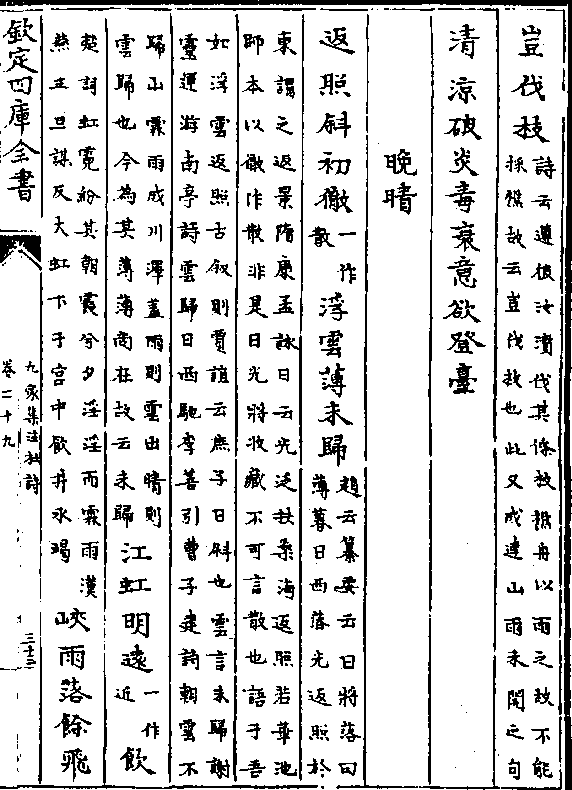 豈伐枚詩云遵彼汝濆伐其條枚操舟以雨之故不能
採樵故云豈伐枚也此又成連山雨未開之句
清涼破炎毒衰意欲登臺
晚晴
返照斜初徹一作散浮雲薄未歸趙云纂要云日將落曰
薄暮日西落光返照於
東謂之返景隋康孟詠日云光泛扶桑海返照若華池
師本以徹作散非是日光將收藏不可言散也語于吾
如浮雲返照古叙則賈誼云庶子日斜也雲言未歸謝
靈運游南亭詩雲歸日西馳李善引曹子建詩朝雲不
歸山霖雨成川澤蓋雨則雲出晴則
雲歸也今為其薄薄尚在故云未歸江虹明遠一作近飲
楚詞虹霓紛其朝霞兮夕淫淫而霖雨漢
燕王旦謀反大虹下于宮中飲井水竭峽雨落餘飛
欽定四庫全書
九家集注杜詩
卷二十九
三十三